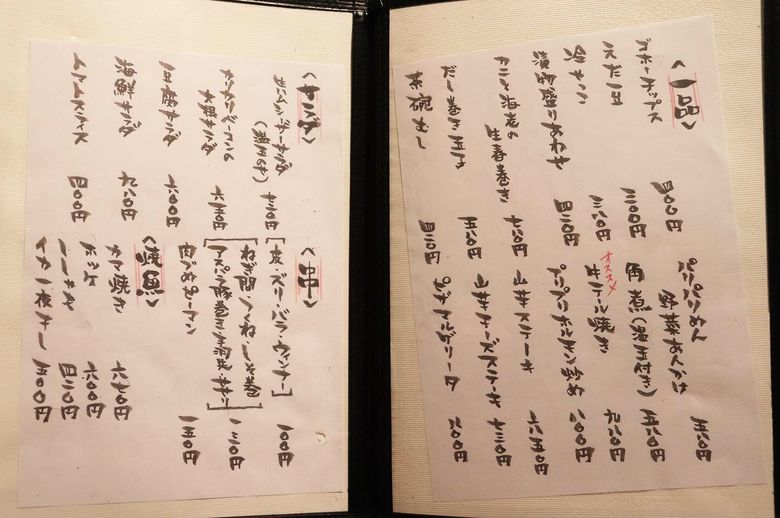 〈一品〉
ゴボーチップス 四〇〇円
えだ豆 三〇〇円
冷やっこ 三八〇円
漬物盛りあわせ 四二〇円
カニと海老の
生春巻き 七八〇円
だし巻き玉子 五八〇円
茶碗むし 四三〇円
パリパリめん
野菜あんかけ 五八〇円
角煮(温玉付き) 五八〇円
オススメ
牛テール焼き 九八〇円
プリプリホルモン炒め 八〇〇円
山芋ステーキ 六五〇円
山芋チーズステーキ 七三〇円
ピザマルゲリータ 八〇〇円
〈サラダ〉
生ハムシーザーサラダ
(温玉のせ) 七三〇円
カリカリベーコンの
大根サラダ 六五〇円
豆腐サラダ 六〇〇円
海鮮サラダ 九八〇円
トマトスライス 四〇〇円
〈串〉
[皮・ズリ・バラ・ウィンナー] 一〇〇円
[ねぎ間・つくね・しそ巻
アスパラ豚巻き・手羽先・] 一三〇円
肉づめピーマン 一五〇円
〈焼魚〉
カマ焼き 六七〇円
ホッケ 六〇〇円
四三〇円
イカ一夜干し 五〇〇円